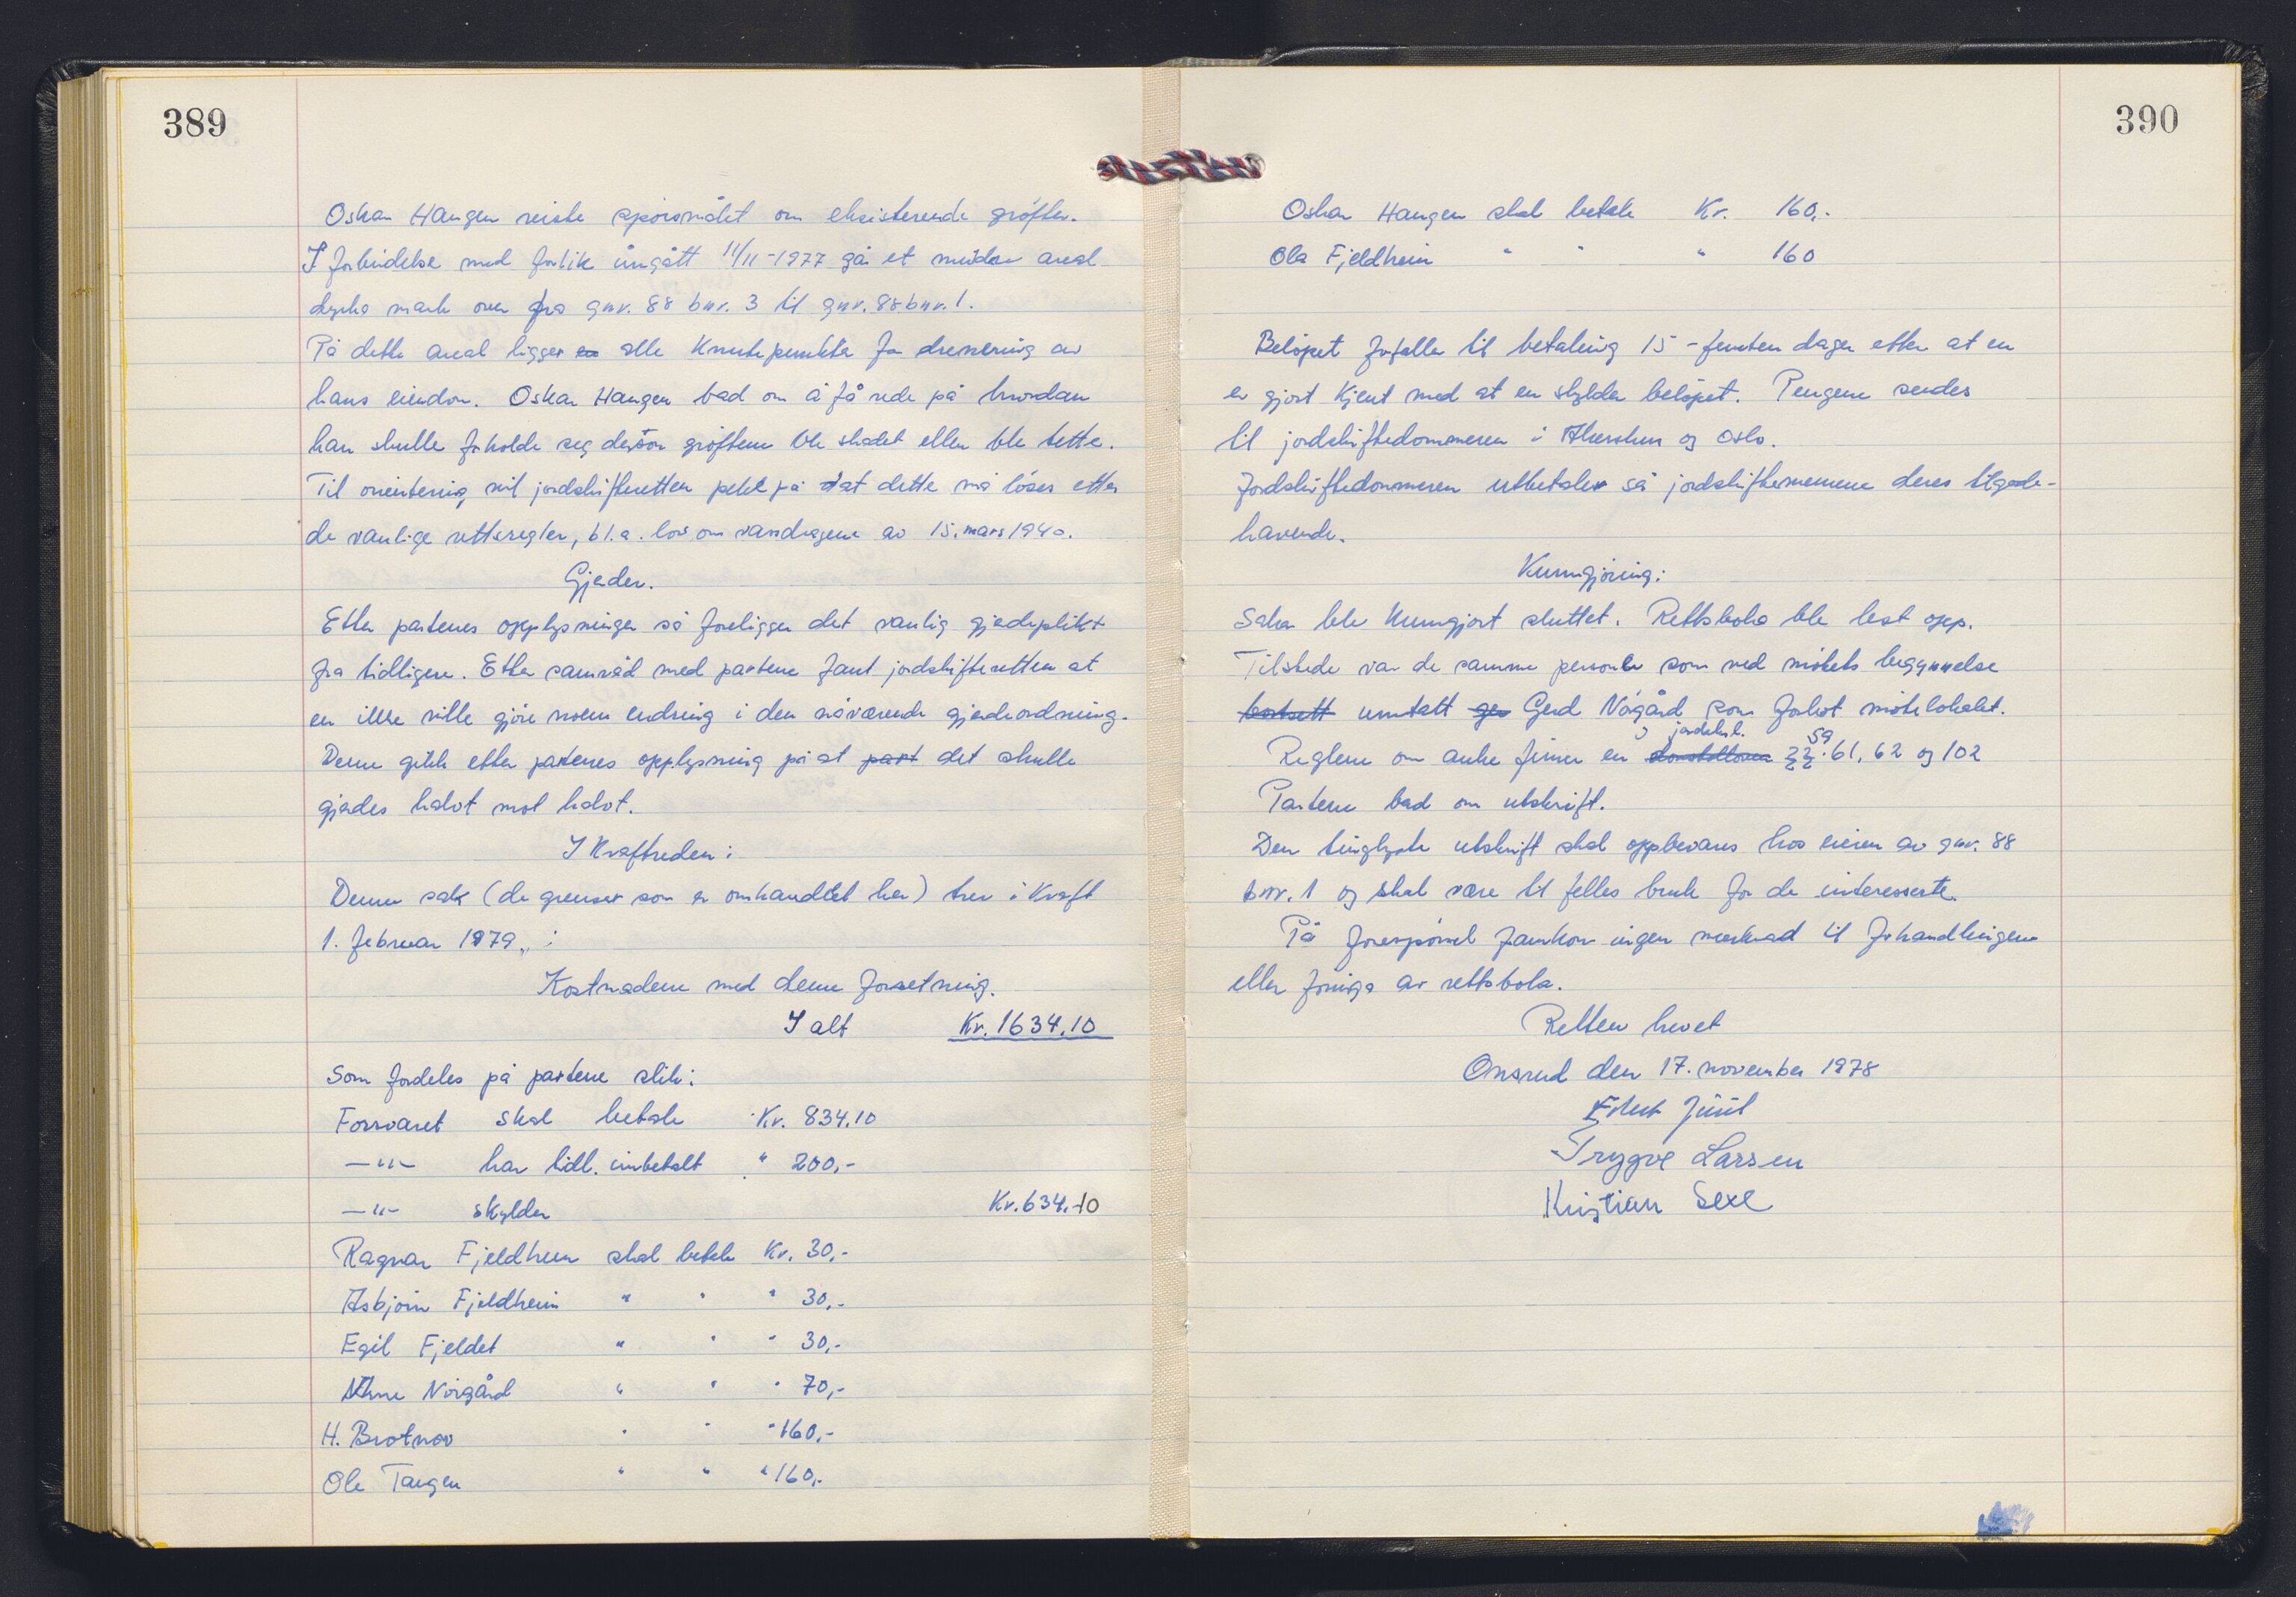 389
Oskar Haugen reiste spørsmålet om eksisterende grøfter.
I forbindelse med forlik inngått 11/11-1977 går et mindre areal
dyrka mark over fra gnr. 88 bnr. 3 til gnr. 88 bnr. 1.
På dette areal ligger en alle knutepunkter for drenering av
hans eiendom. Oskar Haugen bad om å få rede på hvordan
han skulle forholde seg dersom grøftene ble skadet eller ble tette.
Til orientering vil jordskifteretten peke på at dette må løses etter
de vanlige rettsregler, bl.a. lov om vassdragene av 15. mars 1940.
Gjerder.
Etter partenes opplysninger så foreligger det vanlig gjerdeplikt
fra tidligere. Etter samråd med partene fant jordskifteretten at
en ikke ville gjøre noen endring i den nåværende gjerdeordning.
Denne gikk etter partenes opplysning på at part det skulle
gjerdes halvt mot halvt.
I Krafttreden:
Denne sak (de grenser som er omhandlet her) trer i kraft
1. februar 1979.
Kostnadene med denne forretning.
I alt Kr. 1634.10
Som fordeles på partene slik:
Forsvaret skal betale Kr. 834.10
—"— har tidl. innbetalt " 200,-
—"— skylder Kr. 634.10
Ragnar Fjeldheim skal betale Kr. 30,-
Asbjørn Fjeldheim " " " 30,-
Egil Fjeldet " " " 30,-
Norgård " " " 70,-
H. Brotnov " " " 160,-
Ole Tangen " " " 160,-
390
Oskar Haugen skal betale Kr. 160,-
Ola Fjeldheim " " " 160
Beløpet forfaller til betaling 15 - femten dager etter at en
er gjort kjent med at en skylder beløpet. Pengene sendes
til jordskiftedommeren i Akershus og Oslo.
Jordskiftedommeren utbetaler så jordskiftemennene deres tilgode-
havende.
Kunngjøring:
Saken ble kunngjort sluttet. Rettsboka ble lest opp.
Tilstede var de samme personer som ved møtets begynnelse
bortsett unntatt Gerd Norgård som forlot møtelokalet.
jordskl. sa
Reglene om anke finner en §§. 61, 62 og 102
Partene bad om utskrift.
Den tinglyste utskrift skal oppbevares hos eieren av gnr. 88
bnr. 1 og skal være til felles bruk for de interesserte.
På forespørsel framkom ingen merknad til forhandlingene
eller føringa av rettsboka.
Retten hevet
Onsrud den 17. november 1978
Juul
Trygve Larsen
Kristian Sexe